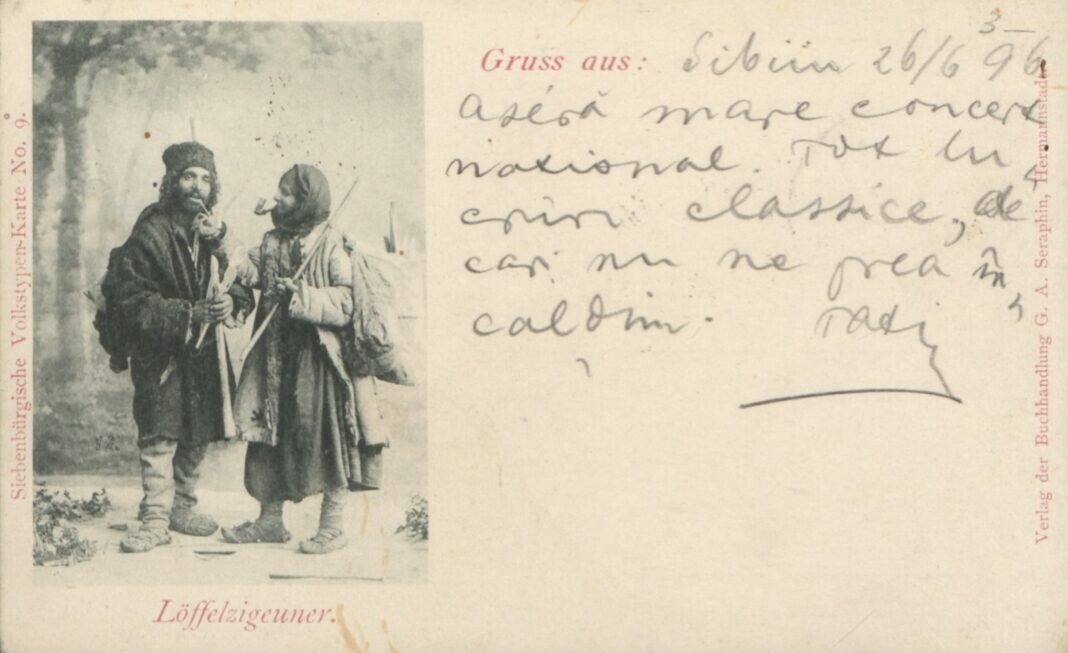 Siebenbürgische Volkstypen-Karte No. 9.
Gruss aus: Sibiiu 26/6 96
3-
aséră mare concert
național. Tot lu
cruri classice, de
cari nu ne prea în
căldim.
Löffelzigeuner.
Verlag der Buchhandlung G. A. Seraphin, Hermannstadt.